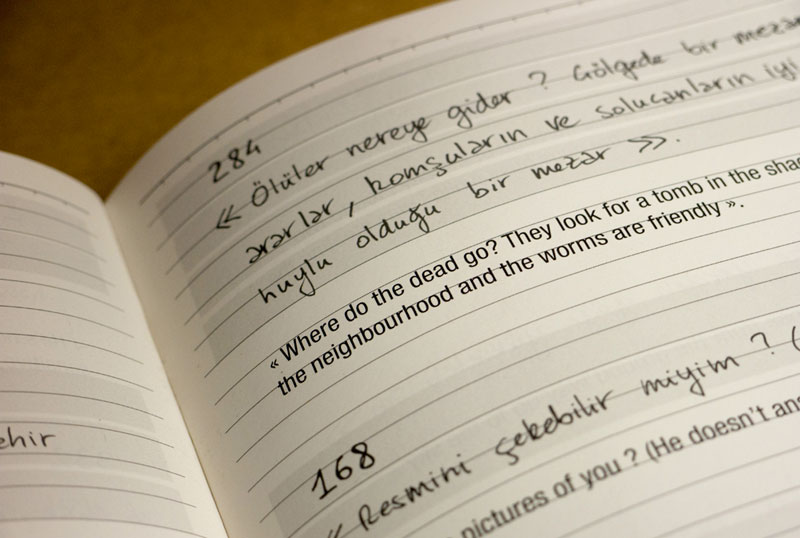 ehir
284
« Ölüler nereye gider ? Gölgede bir mezar
ararlar, komşuların ve solucanların iyi
huylu olduğu bir mezar ».
« Where do the dead go? They look for a tomb in the
the neighbourhood and the worms are friendly ».
168
« Resmini çekebilir miyim ? (
pictures of you ? (He doesn't